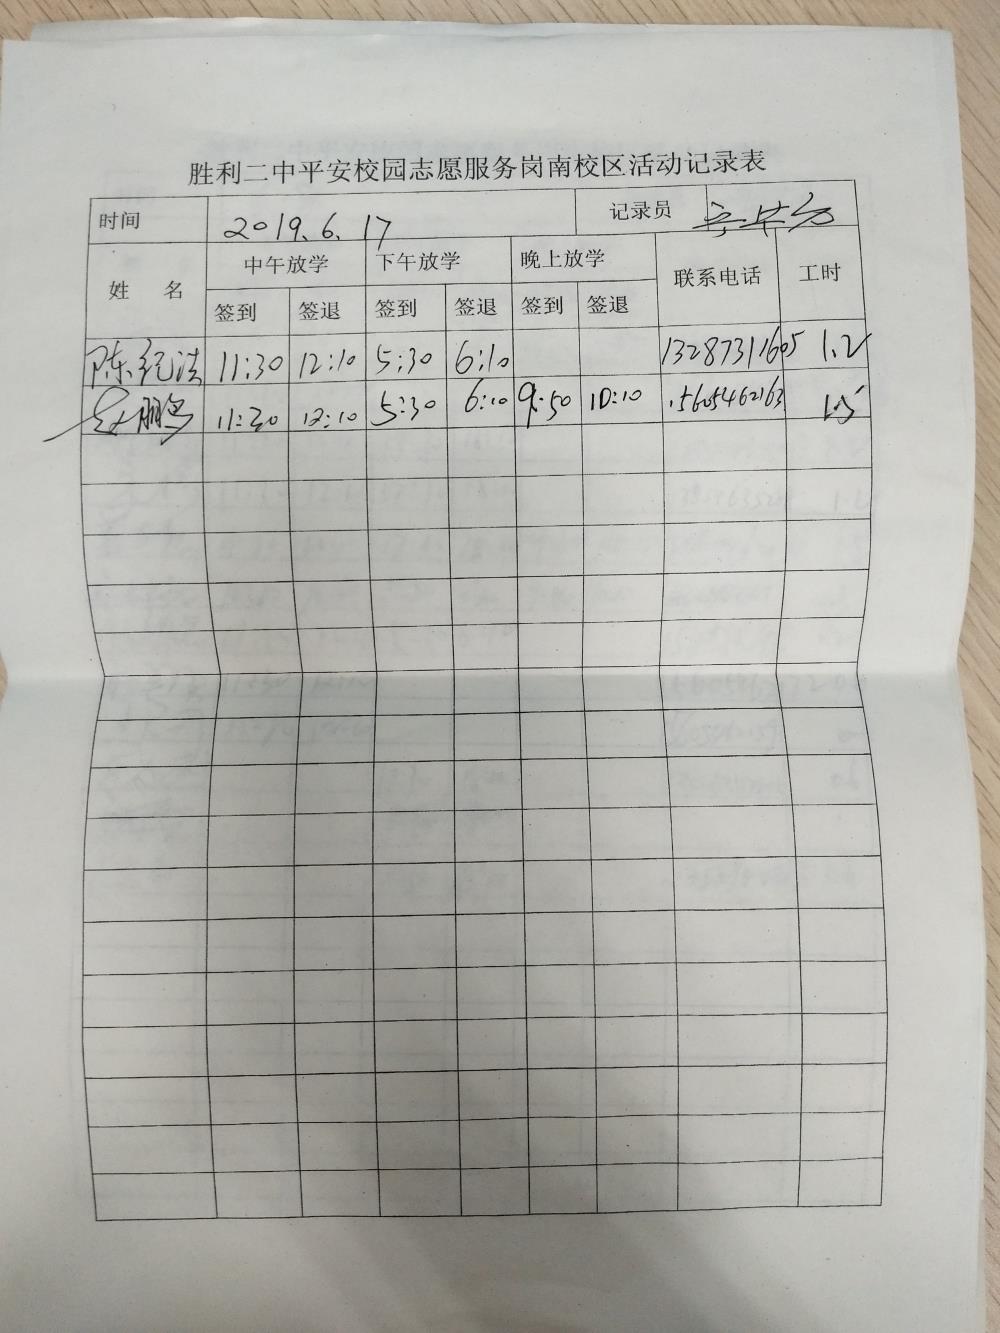 胜利二中平安校园志愿服务岗南校区活动记录表
时间 2019.6.17 记录员
姓 名 中午放学 下午放学 晚上放学 联系电话 工时
签到 签退 签到 签退 签到 签退
陈纪洪 11:30 12:10 5:30 6:10 13287311605 1.2
鹏 11:30 12:10 5:30 6:10 9:50 10:10 15605462163 1.5